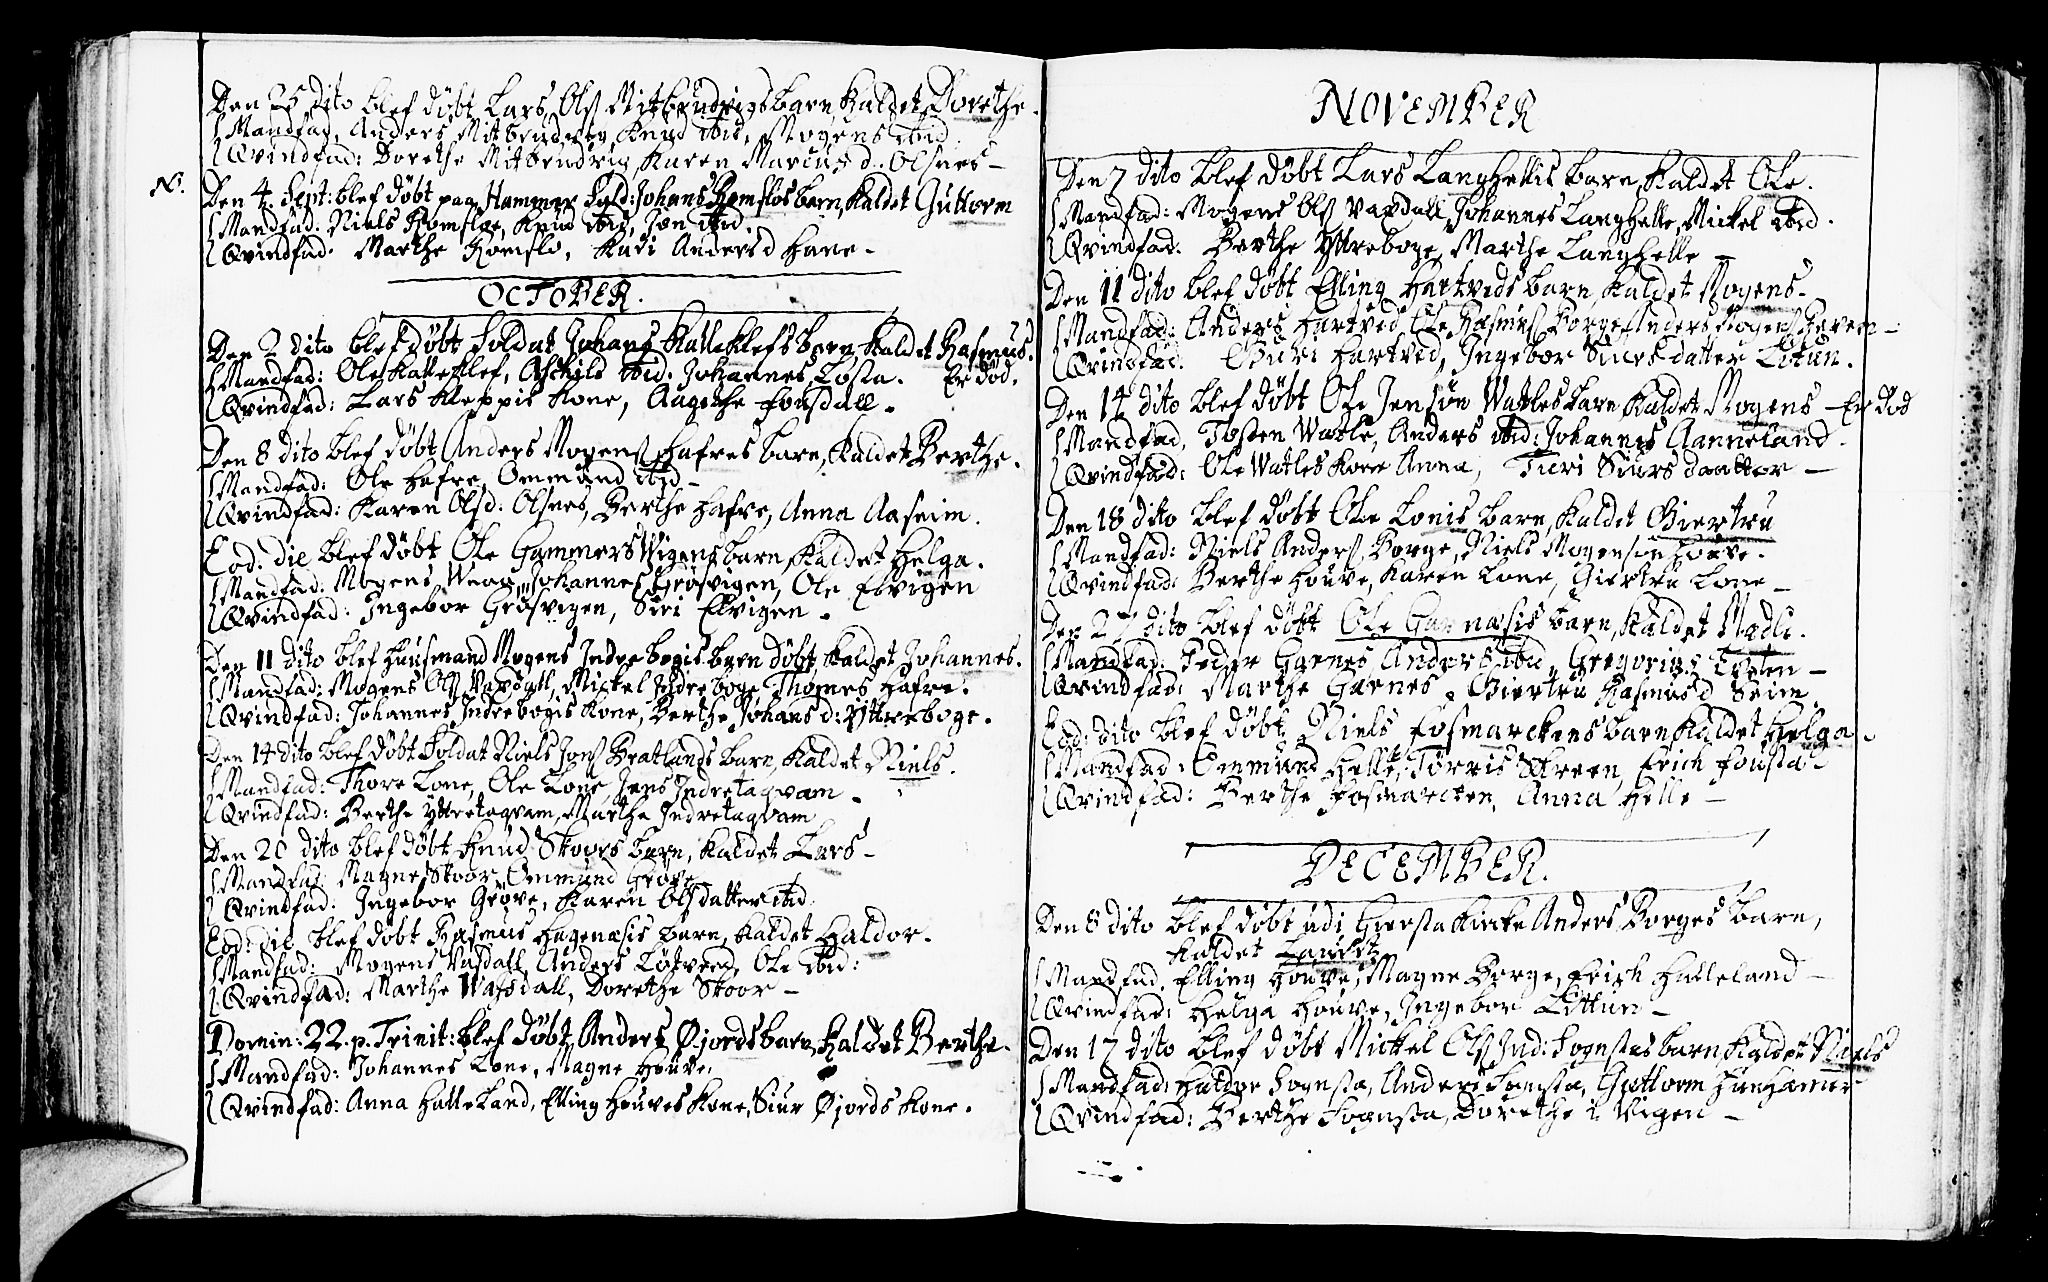 Den 25 dito blef døbt Lars Olss Mitbøndrigs barn, kaldet Dorethe.
Mandfad. Anders Mitbøndrig, Knud ibid, Mogens ibid
Qvindfad: Dorethe Mitbøndrig, Karen Marcusd. Olsnes –
N. Den 4. Sept: blef døbt paa Hammer Johans Romslos barn, kaldet Guttorm
Mandfad: Niels Romsloe, Knud ibid, Jon ibid.
Qvindfad: Marthe Romslo, Kari Andersd Hane –
OCTOBER.
Den 2 dito blef døbt Soldat Johans Kalleklefs barn, kaldet Rasmus.
Mandfad: Ole Kalleklef, Aschils ibid. Johannes Losta. Er død.
Qvindfad: Lars Kleppis Kone, Aagethe Fonsdall.
Den 8 dito blef døbt Anders Mogenss Hafres barn, kaldet Berthe.
Mandfad: Ole Hafre, Ommund ibid –
Qvindfad: Karen Olsd: Olsnes, Berthe Hafre, Anna Aaseim.
Eod: die blef døbt Ole Gammersvigens barn, kaldet Helga.
Mandfad: Mogens Waaa, Johannes Grøsvigen, Ole Elvigen
Qvindfad: Ingebor Grøsvigen, Siri Elvigen.
Den 11 dito blef Huusmand Mogens Indrebogis barn døbt kaldet Johannes.
Mandfad: Mogens Olss Waxdall, Mickel Indreboge, Thomes Hafre.
Qvindfad: Johannes Indrebogis Kone, Berthe Johansd: Yttreboge.
Den 14 dito blef døbt Soldat Niels Jonss Bratlands barn, kaldet Niels.
Mandfad: Thore Lone, Ole Lone, Jens Indretaqvam.
Qvindfad: Berthe Yttretaqvam, Marthe Indretaqvam
Den 20 dito blef døbt Knud Skoors barn, kaldet Lars –
Mandfad: Magne Skoor, Ommund Grøve
Qvindfad: Ingebor Grøve, Karen Olsdatter ibid:
Eod: die blef døbt Rasmus Hagenæsis barn, kaldet Haldor.
Mandfad: Mogens Vaxdall, Anders Løtveed, Ole ibid:
Qvindfad: Marthe Waxsdall, Dorethe Skoor –
Domin: 22. p. Trinit: blef døbt Anders Øjords barn, kaldet Berthe.
Mandfad: Johannes Lone, Magne Houve,
Qvindfad: Anna Halleland, Elling Houves Kone, Siur Øjords Kone.
NOVEMBER
Den 7 dito blef døbt Lars Langhellis barn, kaldet Ole.
Mandfad: Mogens Olss Vaxdall, Johannes Langhelle, Mickel ibid.
Qvindfad: Berthe Yttreboge, Marthe Langhelle –
Den 11 dito blef døbt Elling Hartveds barn, kaldet Mogens –
Mandfad: Anders Hartved, Ole Rasmuss Borge, Anders Mogenss
Qvindfad: Guri Hartved, Ingebor Siursdatter Littun.
Den 14 dito blef døbt Ole Jensøn Watles barn, kaldet Mogens – Er død
Mandfad, Tosten Watle, Anders ibid: Johannes Aanneland.
Qvindfad: Ole Watles Kone Anna, Turi Siursdaatter –
Den 18 dito blef døbt Ole Lonis barn, kaldet Giertru
Mandfad: Niels Anderss Borge, Niels Mogensøn Houve.
Qvindfad: Berthe Houve, Karen Lone, Giertru Lone –
Den 27 dito blef døbt Ole Garnæsis barn, kaldet Madli.
Mandfad: Peder Garnes, Anders ibid, Gregorius Tosten –
Qvindfad: Marthe Garnes, Giertru Rasmusd Seim
Eod: dito blef døbt Niels Fosmarckens barn, kaldet Helga.
Mandfad: Ommund Helle, Torris Streen, Erich Fonsta –
Qvindfad: Berthe Fosmarcken, Anna Helle –
DECEMBER.
Den 8 dito blef døbt udi Giersta Kircke Anders Borges barn,
kaldet Lauritz
Mandfad, Elling Houve, Magne Borge, Erich Halleland –
Qvindfad: Helga Houve, Ingebor Littun –
Den 17 dito blef døbt Mickel Olss Ind: Sognstes barn, kaldet Niels
Mandfad: Haldor Sognsta, Anders Sognsta, Guttorm Hunhamer
Qvindfad: Berthe Sognsta, Dorethe i Vigen –